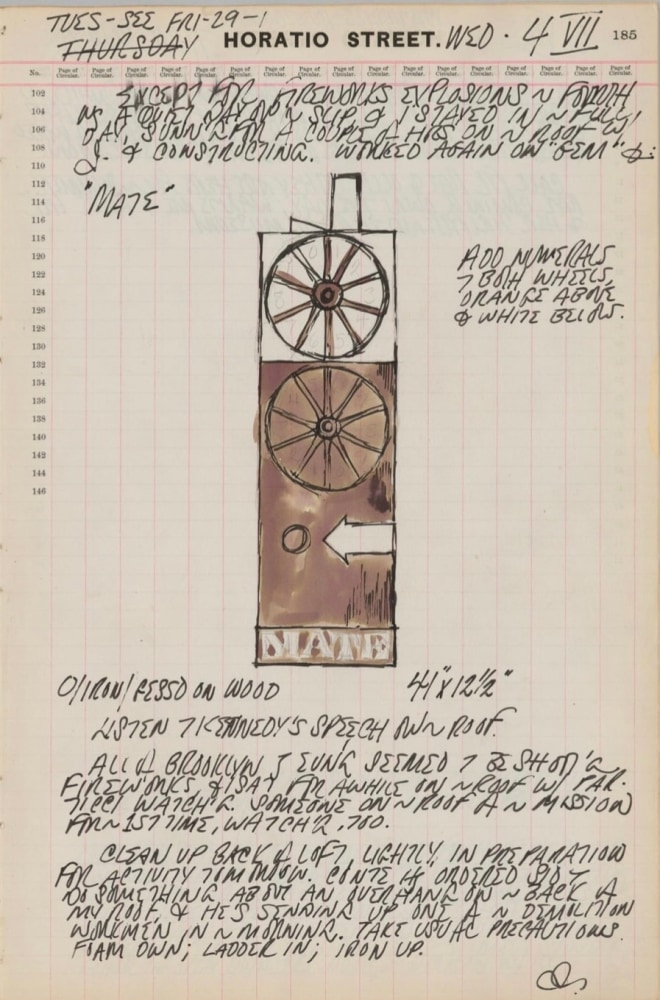 TUES-SEE FRI-29-1
THURSDAY HORATIO STREET. WED. 4 VII 185
No. Page of Circular. Page of Circular. Page of Circular. Page of Circular. Page of Circular. Page of Circular. Page of Circular. Page of Circular. Page of Circular. Page of Circular. Page of Circular. Page of Circular. Page of Circular. Page of Circular. Page of Circular. Page of Circular. Page of Circular.
102 EXCEPT FOR FIREWORKS EXPLOSIONS ~ FOURTH
104 A QUIET DAY ON ~ SLIP & I STAYED IN ~ FULL
106 DAY, SUNN'G FOR A COUPLE HRS ON ~ ROOF W/
108 & CONSTRUCTING. WORKED AGAIN ON "GEM" &:
110
112 "MATE"
114
116
118
120 ADD NUMERALS
122 7 BOTH WHEELS,
124 ORANGE ABOVE
126 & WHITE BELOW.
128
130
132
134
136
138
140
142
144
146
MATE
O/IRON/GESSO ON WOOD 41" X 12 1/2"
LISTEN 7 KENNEDY'S SPEECH ON ~ ROOF.
ALL BROOKLYN SEEMED 7 BE SHOOT'G
FIREWORKS, & I SAT FOR AWHILE ON ~ ROOF W/ PAR-
TICCI WATCH'G. SOMEONE ON ~ ROOF ~ MISSION
FOR ~ 1ST TIME, WATCH'G, TOO.
CLEAN UP BACK LOFT, LIGHTLY, IN PREPARATION
FOR ACTIVITY TOMORROW. CONTE ORDERED
DO SOMETHING ABOUT AN OVERHANG ON ~ BACK
MY ROOF, & HE'S SENDING UP ONE ~ DEMOLITION
WORKMEN IN ~ MORNING. TAKE USUAL PRECAUTIONS.
FOAM DOWN; LADDER IN; IRON UP.